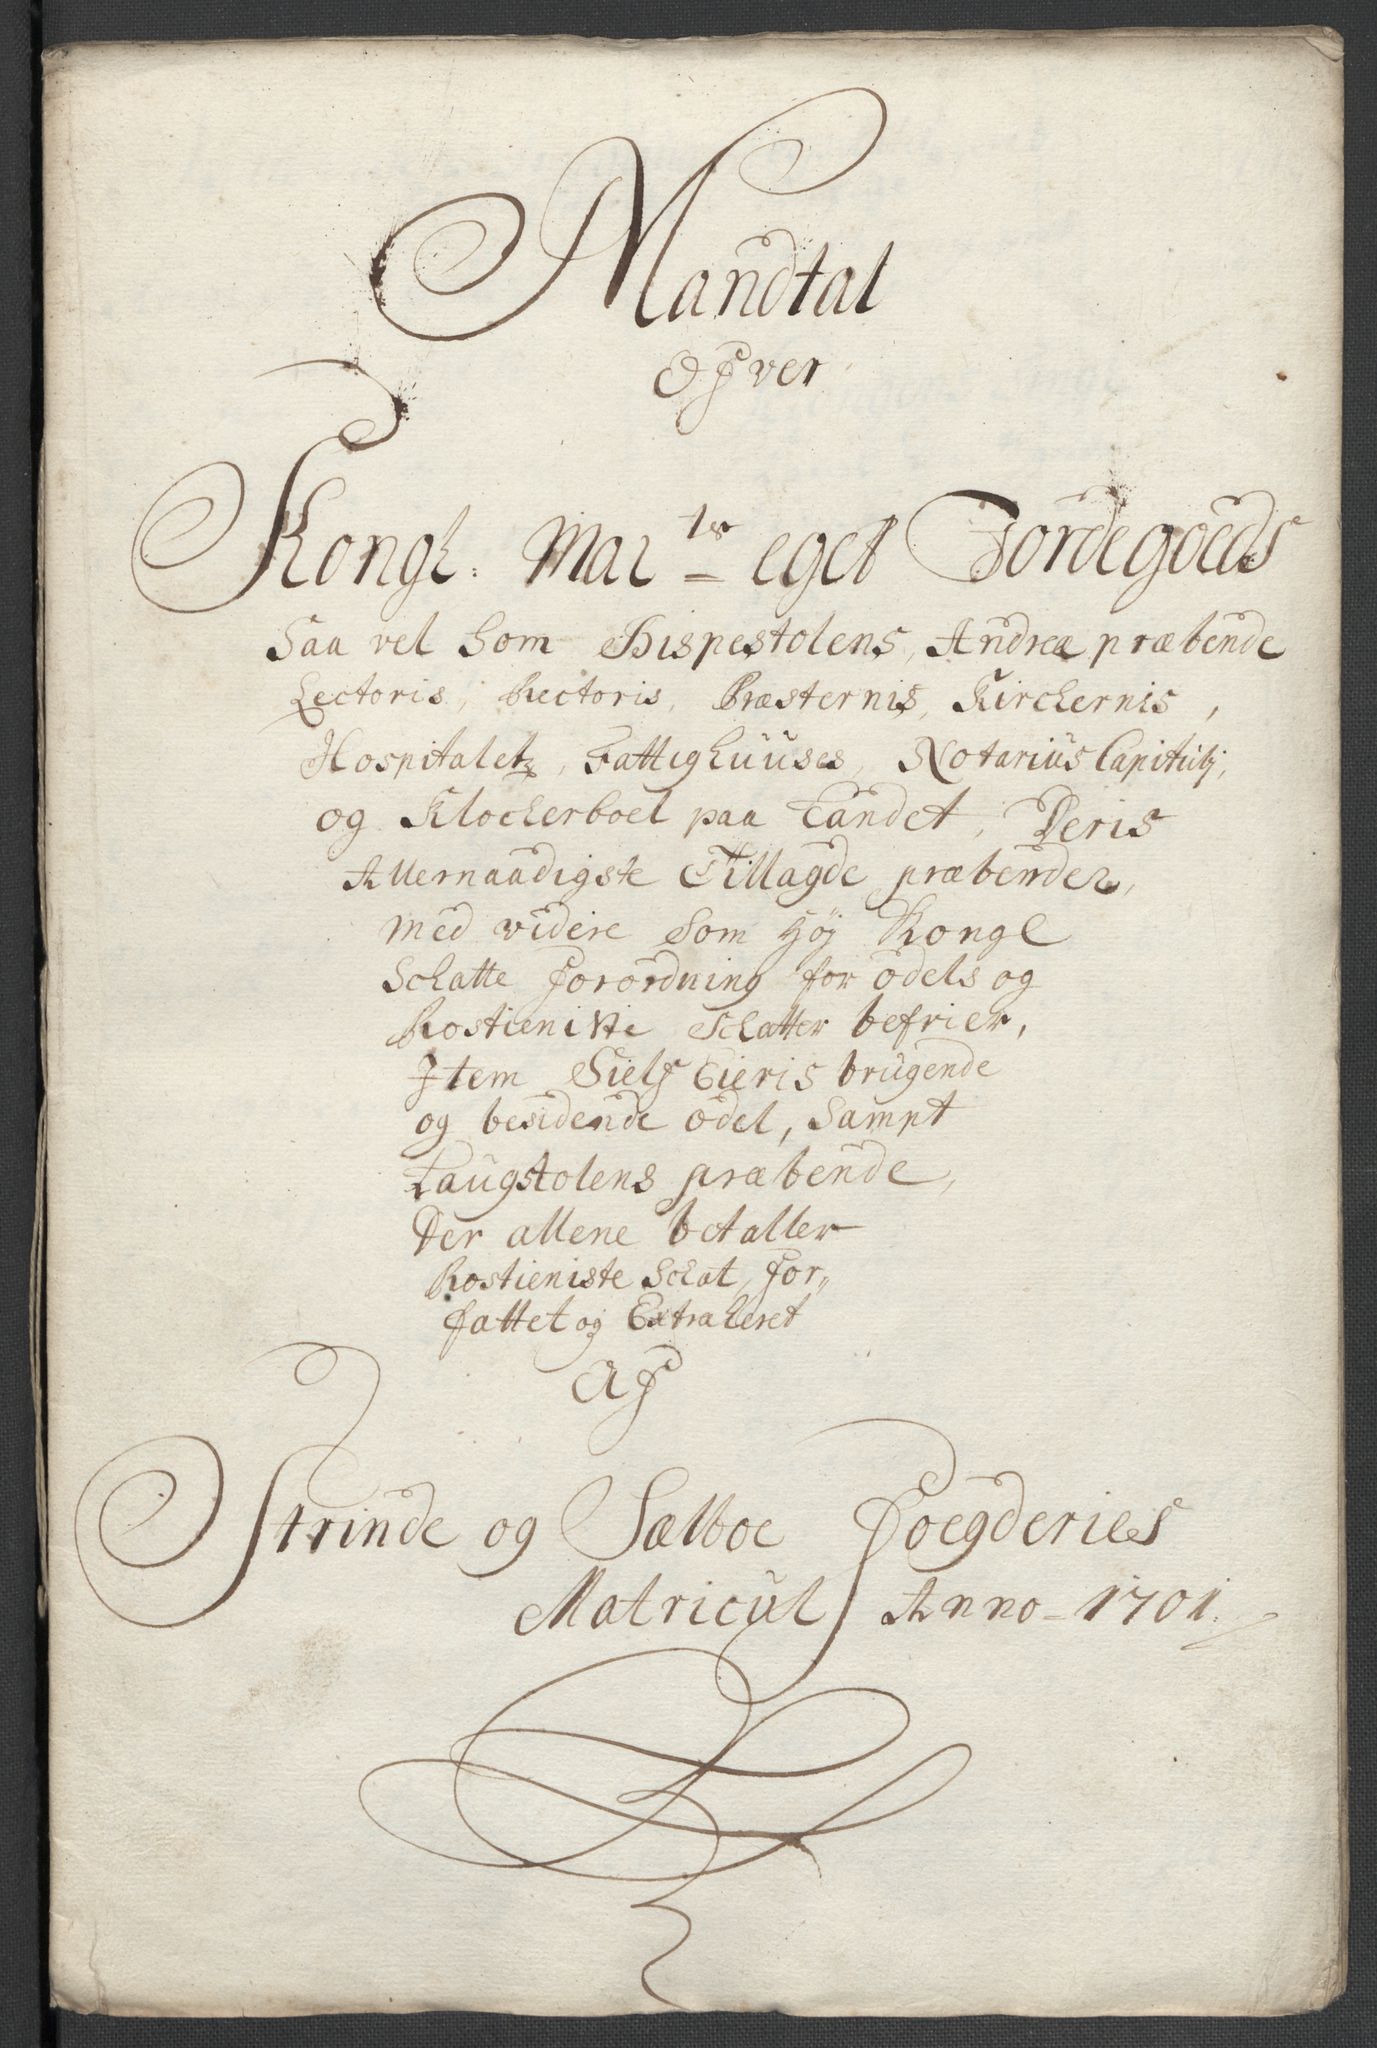 Mandtal
Ofver
Kongl. Mai<sup>ts</sup> eget Jordegoeds
Saa vel Som Bispestolens, Andreæ præbende
Lectoris, Rectoris, Præsternis, Kirchernis,
Hospitaletz, Fattighuuses, Notarius Capitulj,
og Klocherboel paa Landet, Deris
Allernaadigste Tillagde præbender,
med videre Som høj Kongl
Schatte forordning for odels og
Rostieniste Schatter befrier,
Item Sielf Eieris brugende
og besidende odel, Sampt
Laugstolens præbende,
Der allene betaller
Rostieniste Schat, for„
fattet og Extraheret
Af
Strinde og Sælboe Foegderies
Matricul Anno 1701